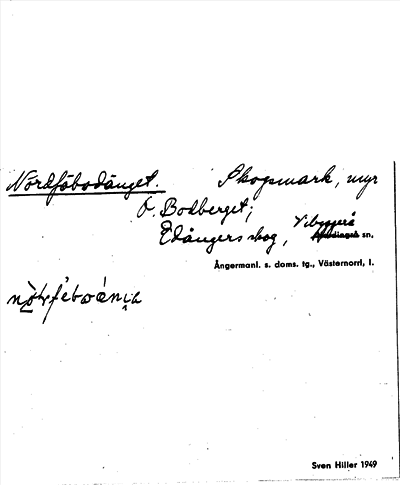 Nordfäbodänget. Skogsmark, myr
O. Bodberget,
Edångers skog, Vibyggerå sn.
Ångermanl. s. doms. tg., Västernorrl. l.
Sven Hiller 1949